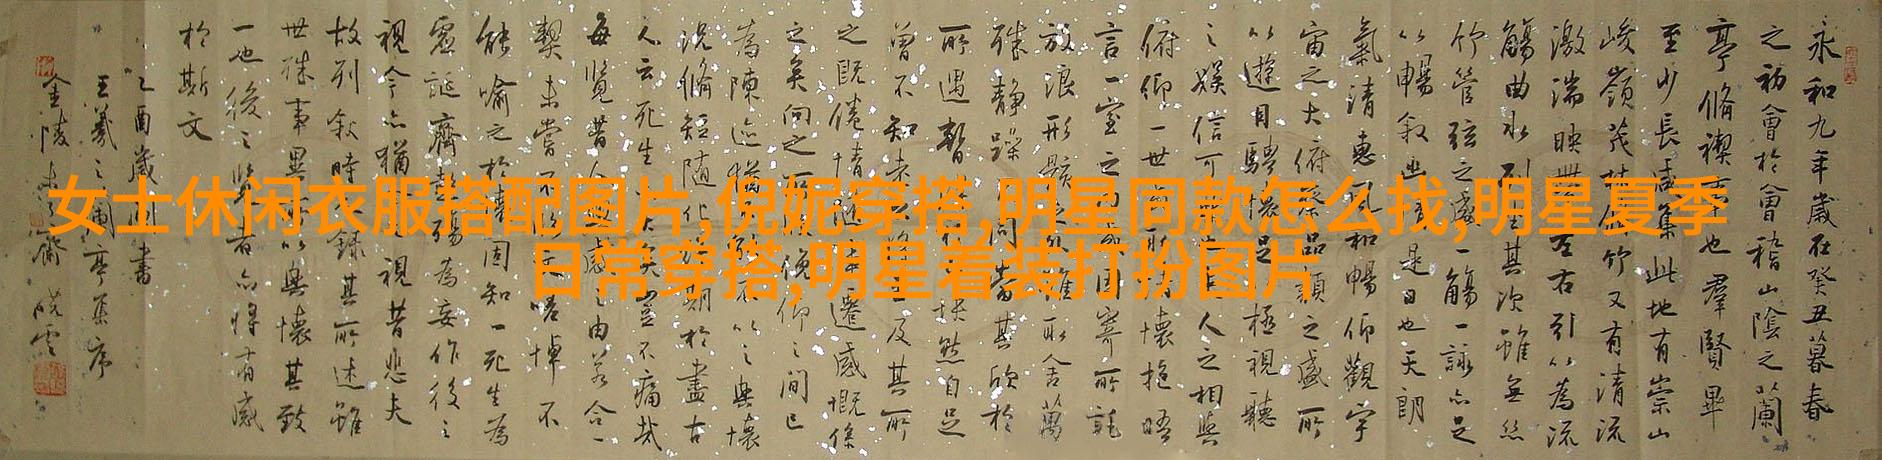 女士休闲衣服搭配图片,倪妮穿搭,明星同款怎么找, 明星夏季
日常穿搭,明星着装打扮图片
永和九年歲在癸丑暮春
之初會於會稽山陰之蘭
亭脩禊事也羣賢畢
至少長咸集此地有崇山
峻嶺茂林修竹又有清流
激湍映帶左右引以為流
觴曲水列坐其次雖無絲
竹管弦之盛一觴一詠亦足
以暢敘幽情是日也天朗
氣清惠風和暢仰觀宇
宙之大俯察品類之盛所
以遊目騁懷足極視聽
之娛信可樂也夫人之相與
俯仰一世或取諸懷抱晤
言一室之內或因寄所託
放浪形骸之外雖取舍萬
殊靜躁不同當其欣於
所遇暫得於己快然自足
曾不知老之將至及其所
之既倦情隨事遷感慨係
之矣向之所欣俛仰之間已
為陳迹猶不能不以之興懷
況脩短隨化終期於盡古
人云死生亦大矣豈不痛哉
每覽昔人興感之由若合一
契未嘗不臨文嗟悼不
能喻之於懷固知一死生為
虛誕齊彭殤為妄作後之
視今亦猶今之視昔悲夫
故列敘時人錄其所述雖
世殊事異所以興懷其致
一也後之覽者亦將有感
於斯文
乙酉歲書
王羲之蘭亭集序
金陵